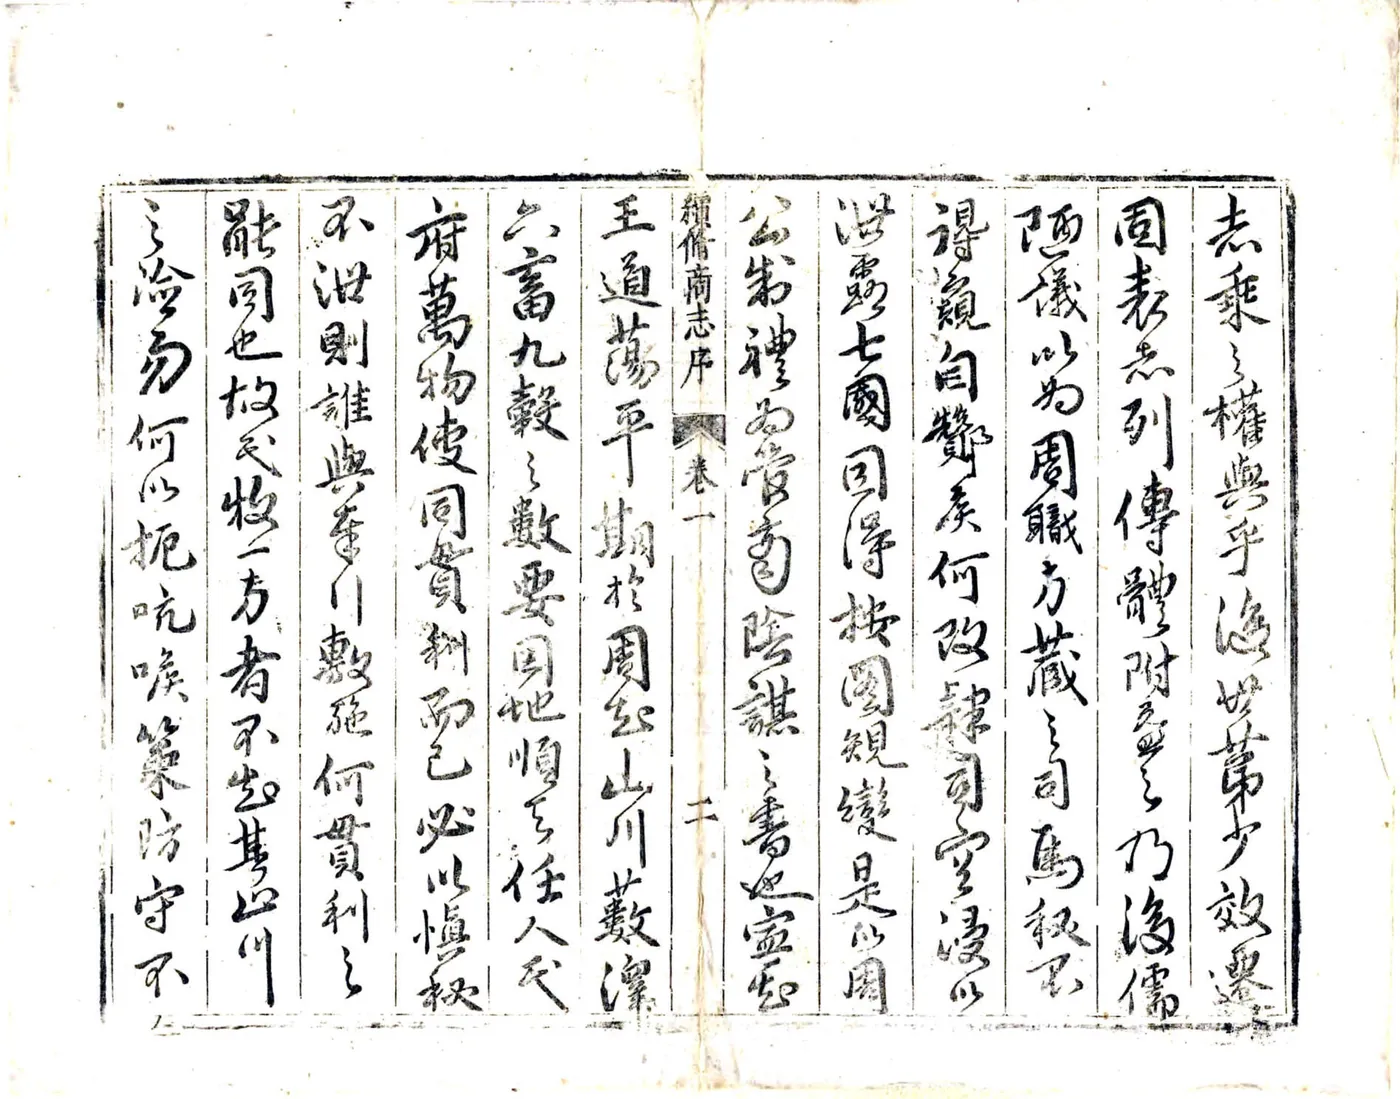 志乘之權輿乎後世第少效遷
固表志列傳體附益之乃後儒
陋議以為周職方藏之司馬秘不
得窺自酇侯何改隸司空漫以
泄露七國因得按圖規變是以周
公制禮為管商陰謀之書也寧知
續脩商志序 卷一 二
王道蕩平期於周知山川藪澤
六畜九穀之數要因地順天任人民
府萬物使同貫利而已必以慎秘
不泄則誰與奉行敷施何貫利之
能同也故民牧一方者不知其山川
之險易何以扼吭喉策防守不